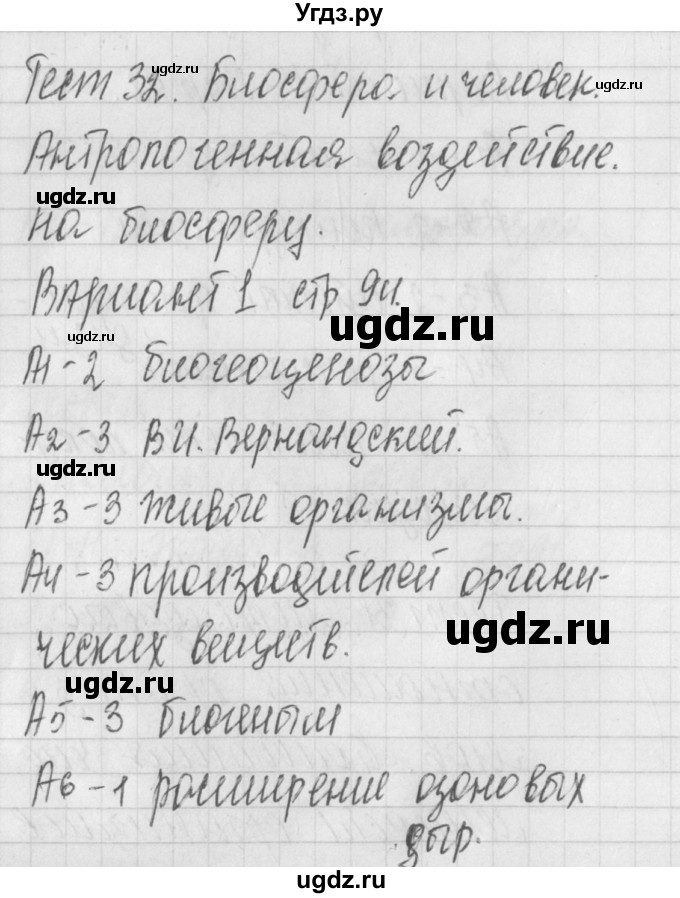 Угдз.ру
ugdz.ru
Тест 32. Биосфера и человек.
ugdz.ru
Антропогенная воздействие.
ugdz.ru
на биосферу.
Вариант 1 стр 94.
ugdz.ru
ugdz.ru
А1-2 биогеоценозы
А2-3 В И. Вернандский.
ugdz.ru
А3-3 живые организмы.
А4-3 производителей органи-
ugdz.ru
ческих веществ.
ugdz.ru
А5-3 биогеным
А6-1 расширение озоновых
дыр.
ugdz.ru